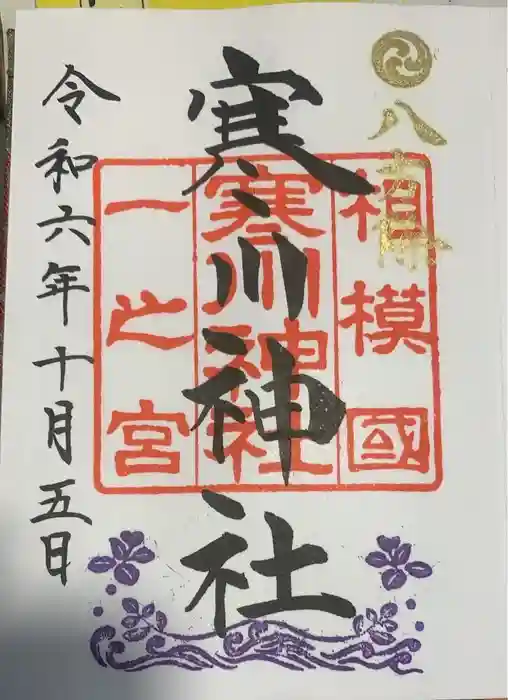 八方除
寒川神社
相模國
寒川神社
一之宮
令和六年十月五日